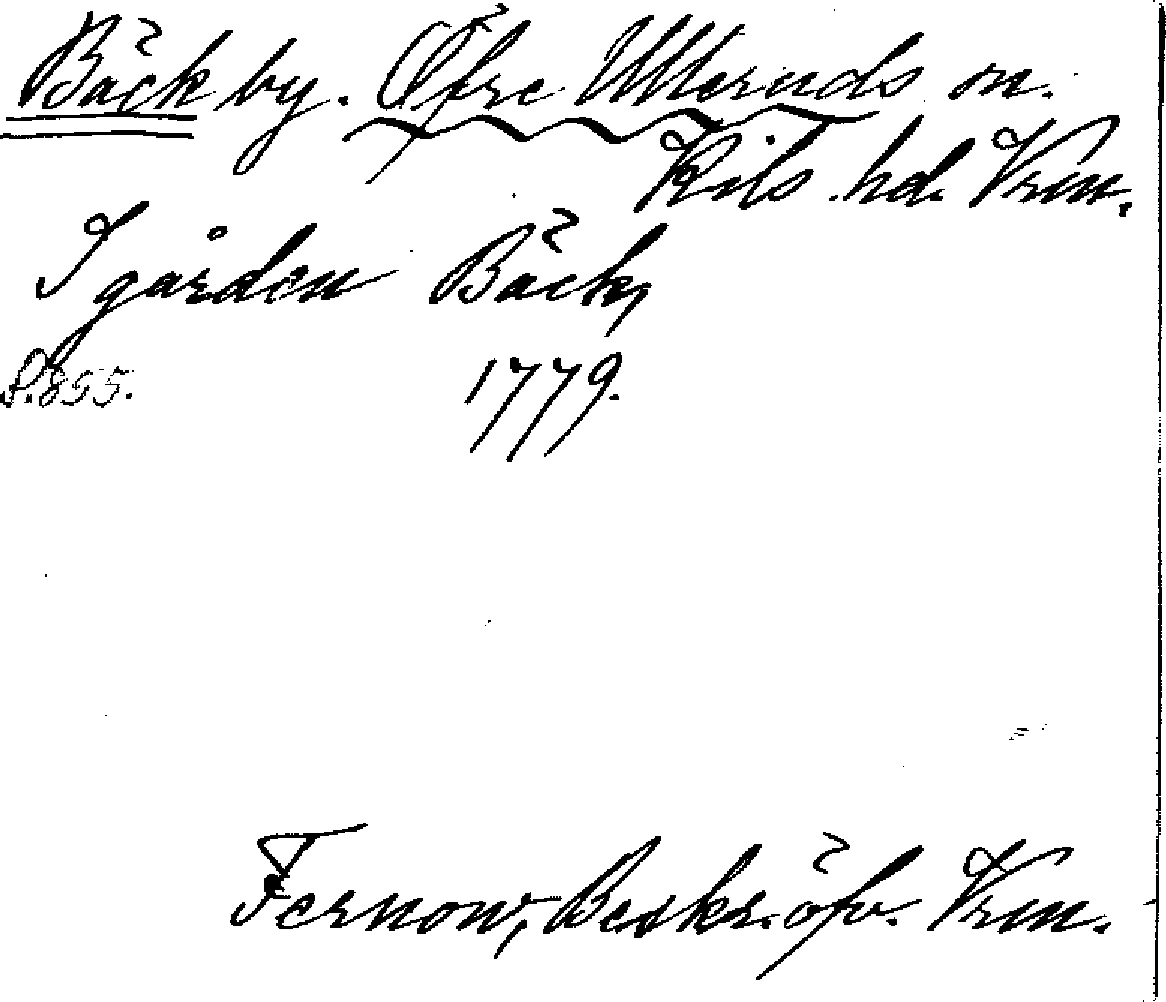 Bäck by. Öfre Ulleruds sn.
Kils hd. Vrm.
I gården Bäck,
S. 855. 1779.
Fernow, Beskr. öfv. Vrm.